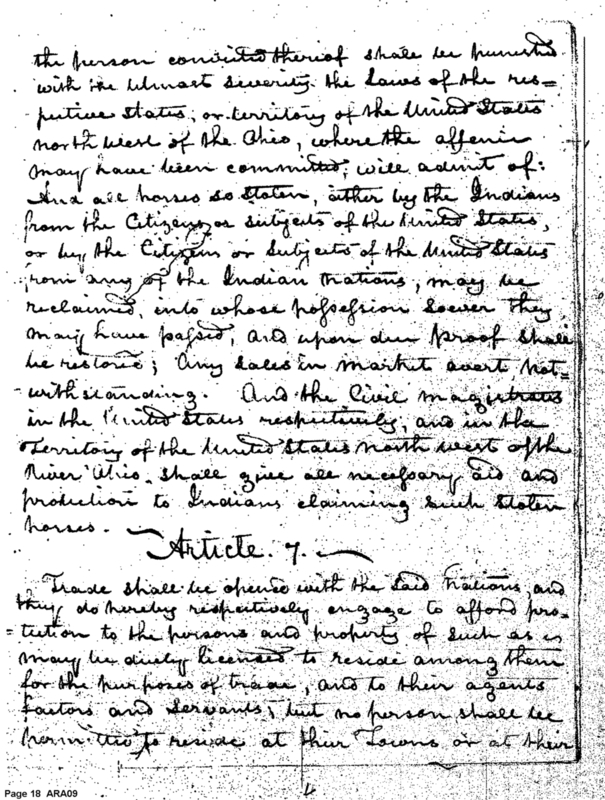 the person convicted thereof shall be punished
with the utmost severity the laws of the res=
pective States, or territory of the United States
north west of the Ohio, where the offence
may have been committed, will admit of:
And all horses so stolen, either by the Indians
from the Citizens or subjects of the United States,
or by the Citizens or Subjects of the United States
from any of the Indian Nations, may be
reclaimed, into whose possession soever they
may have passed, and upon due proof shall
be restored; Any sales in market overt not=
withstanding. And the Civil magistrates
in the United States respectively, and in the
Territory of the United States north west of the
River Ohio, shall give all necessary aid and
protection to Indians claiming such stolen
horses.
Article. 7.
Trade shall be opened with the said Nations, and
they do hereby respectively engage to afford pro=
=tection to the persons and property of such as
may be duely licensed to reside among them
for the purposes of trade, and to their agents
factors and servants; but no person shall be
permitted to reside at their Towns or at their
4
Page 18 ARA09